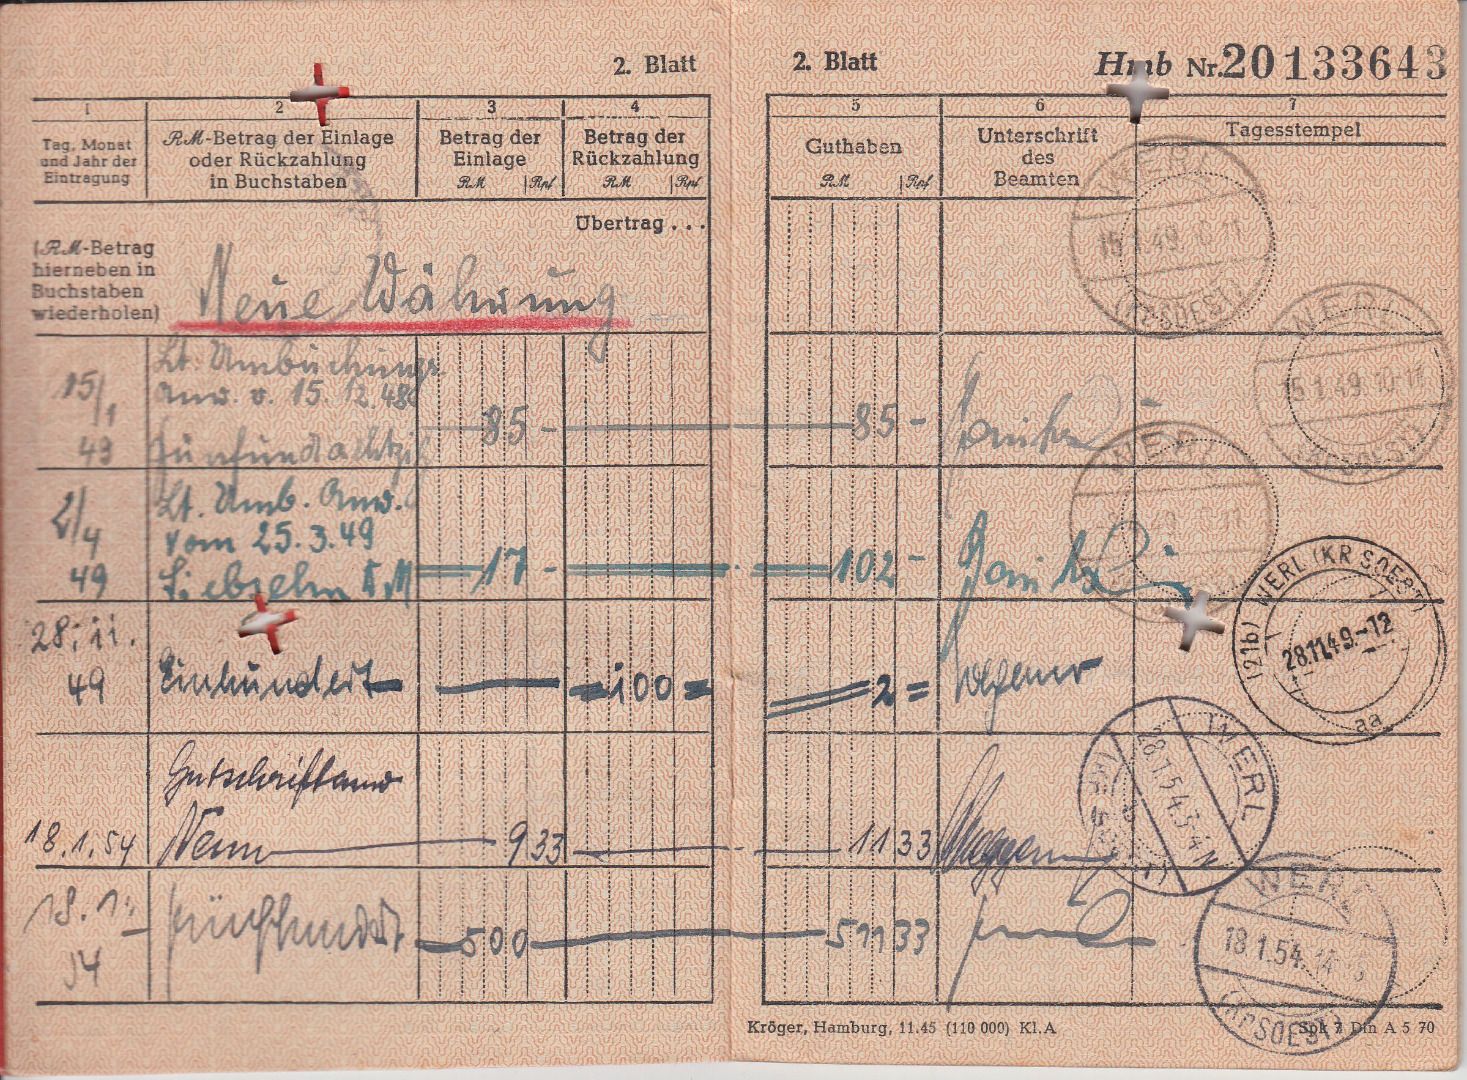 2. Blatt
1 2 3 4
Tag, Monat und Jahr der Eintragung
RM-Betrag der Einlage oder Rückzahlung in Buchstaben
Betrag der Einlage RM Rpf
Betrag der Rückzahlung RM Rpf
Übertrag . . .
(RM-Betrag
hierneben in
Buchstaben
wiederholen)
Neue Währung
15/1 49
Lt. Umbuchungs
Anw. v. 15.12.48
Fünfundachtzig
85 -
2/4 49
Lt. Umb. Anw.
vom 25.3.49
Siebzehn DM
17 -
28.11. 49
Einhundert
= 100 =
18.1.54
Gutschriftanw
Neun
9 33
18.1. 54
Fünfhundert
500
2. Blatt
Hmb Nr. 20133643
5 6 7
Guthaben RM Rpf
Unterschrift des Beamten
Tagesstempel
85 -
102 -
2 =
11 33
511 33
WERL
15.1.49. 10-11
(KrSOEST)
WERL
15.1.49. 10-11
(KrSOEST)
WERL
WERL (KR SOEST)
(21b)
28.11.49.-12
aa
WERL
(KR SOEST)
WERL
18.1.54.
(KrSOEST)
Kröger, Hamburg, 11.45 (110 000) Kl. A
Spk 7 Din A 5 70